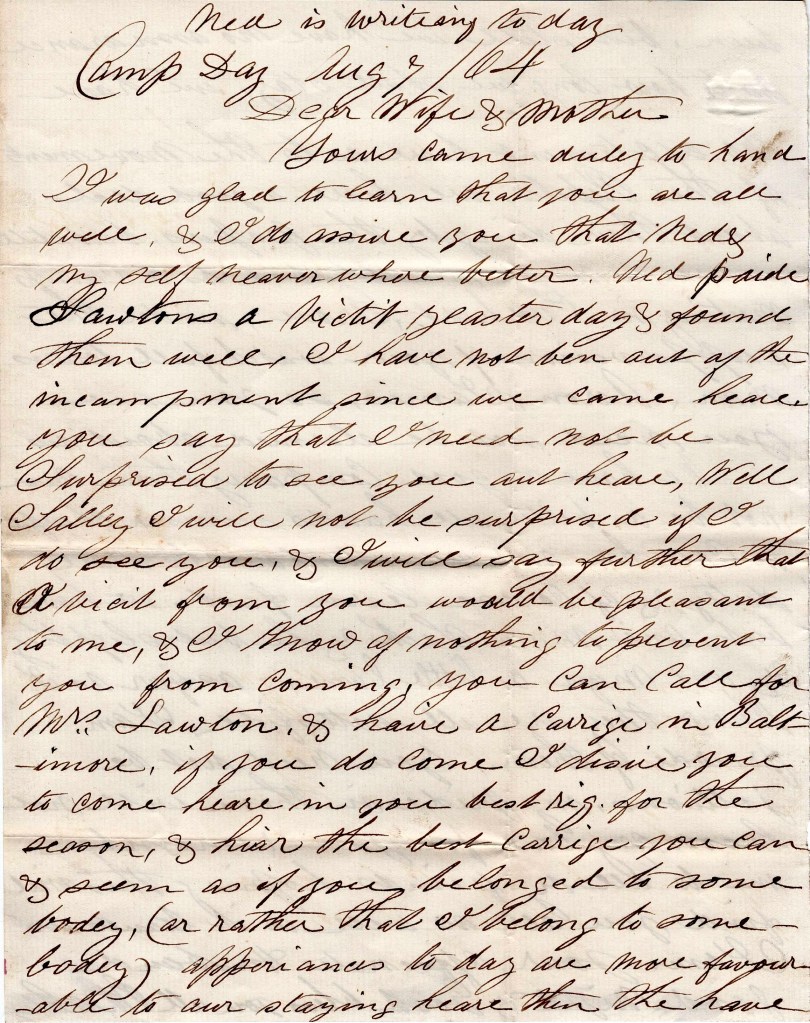 Ned is writing to day
Camp Day Aug 7 /64
Dear Wife & Mother
Yours came duley to hand
I was glad to learn that you are all
well, & I do assure you that Ned &
my self neaver whare better. Ned paide
Lawtons a victit yeasterday & found
them well, I have not ben out of the
incampment since we came heare.
you say that I need not be
Surprised to see you out heare, Well
Salley I will not be surprised if I
do see you, & I will say further that
A vicit from you would be pleasant
to me, & I know of nothing to prevent
you from coming, you can call for
Mrs. Lawton, & haire a carrige in Balt-
-imore, if you do come I disire you
to come heare in you best rig. for the
season, & hiar the best carrige you can
& seem as if you belonged to some
bodey, (or rather that I belong to some-
bodey) apperiances to day are more favour-
-able to our staying heare then the have